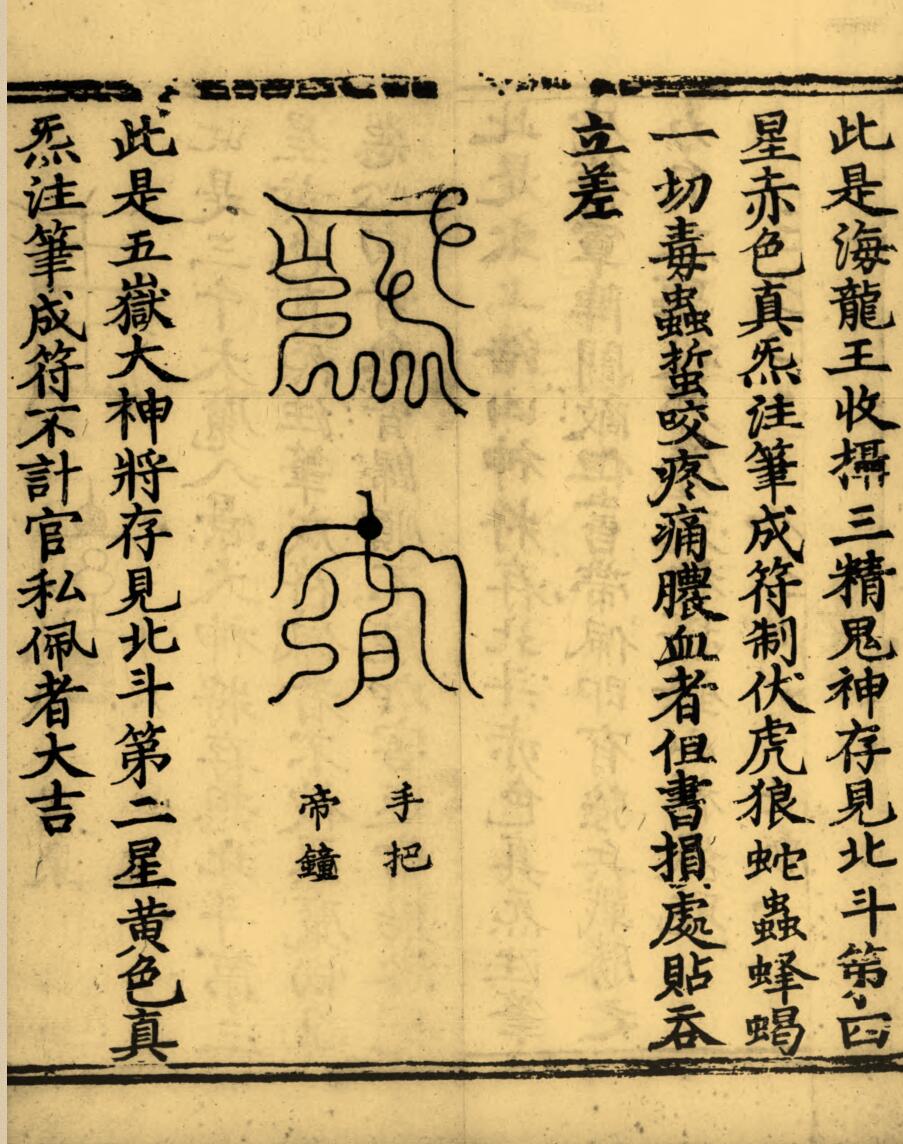 此是海龍王收攝三精鬼神存見北斗第四
星赤色真炁注筆成符制伏虎狼蛇蟲蜂蝎
一切毒蟲蜇咬疼痛膿血者但書損處貼吞
立差
手把
帝鐘
此是五嶽大神將存見北斗第二星黄色真
炁注筆成符不計官私佩者大吉